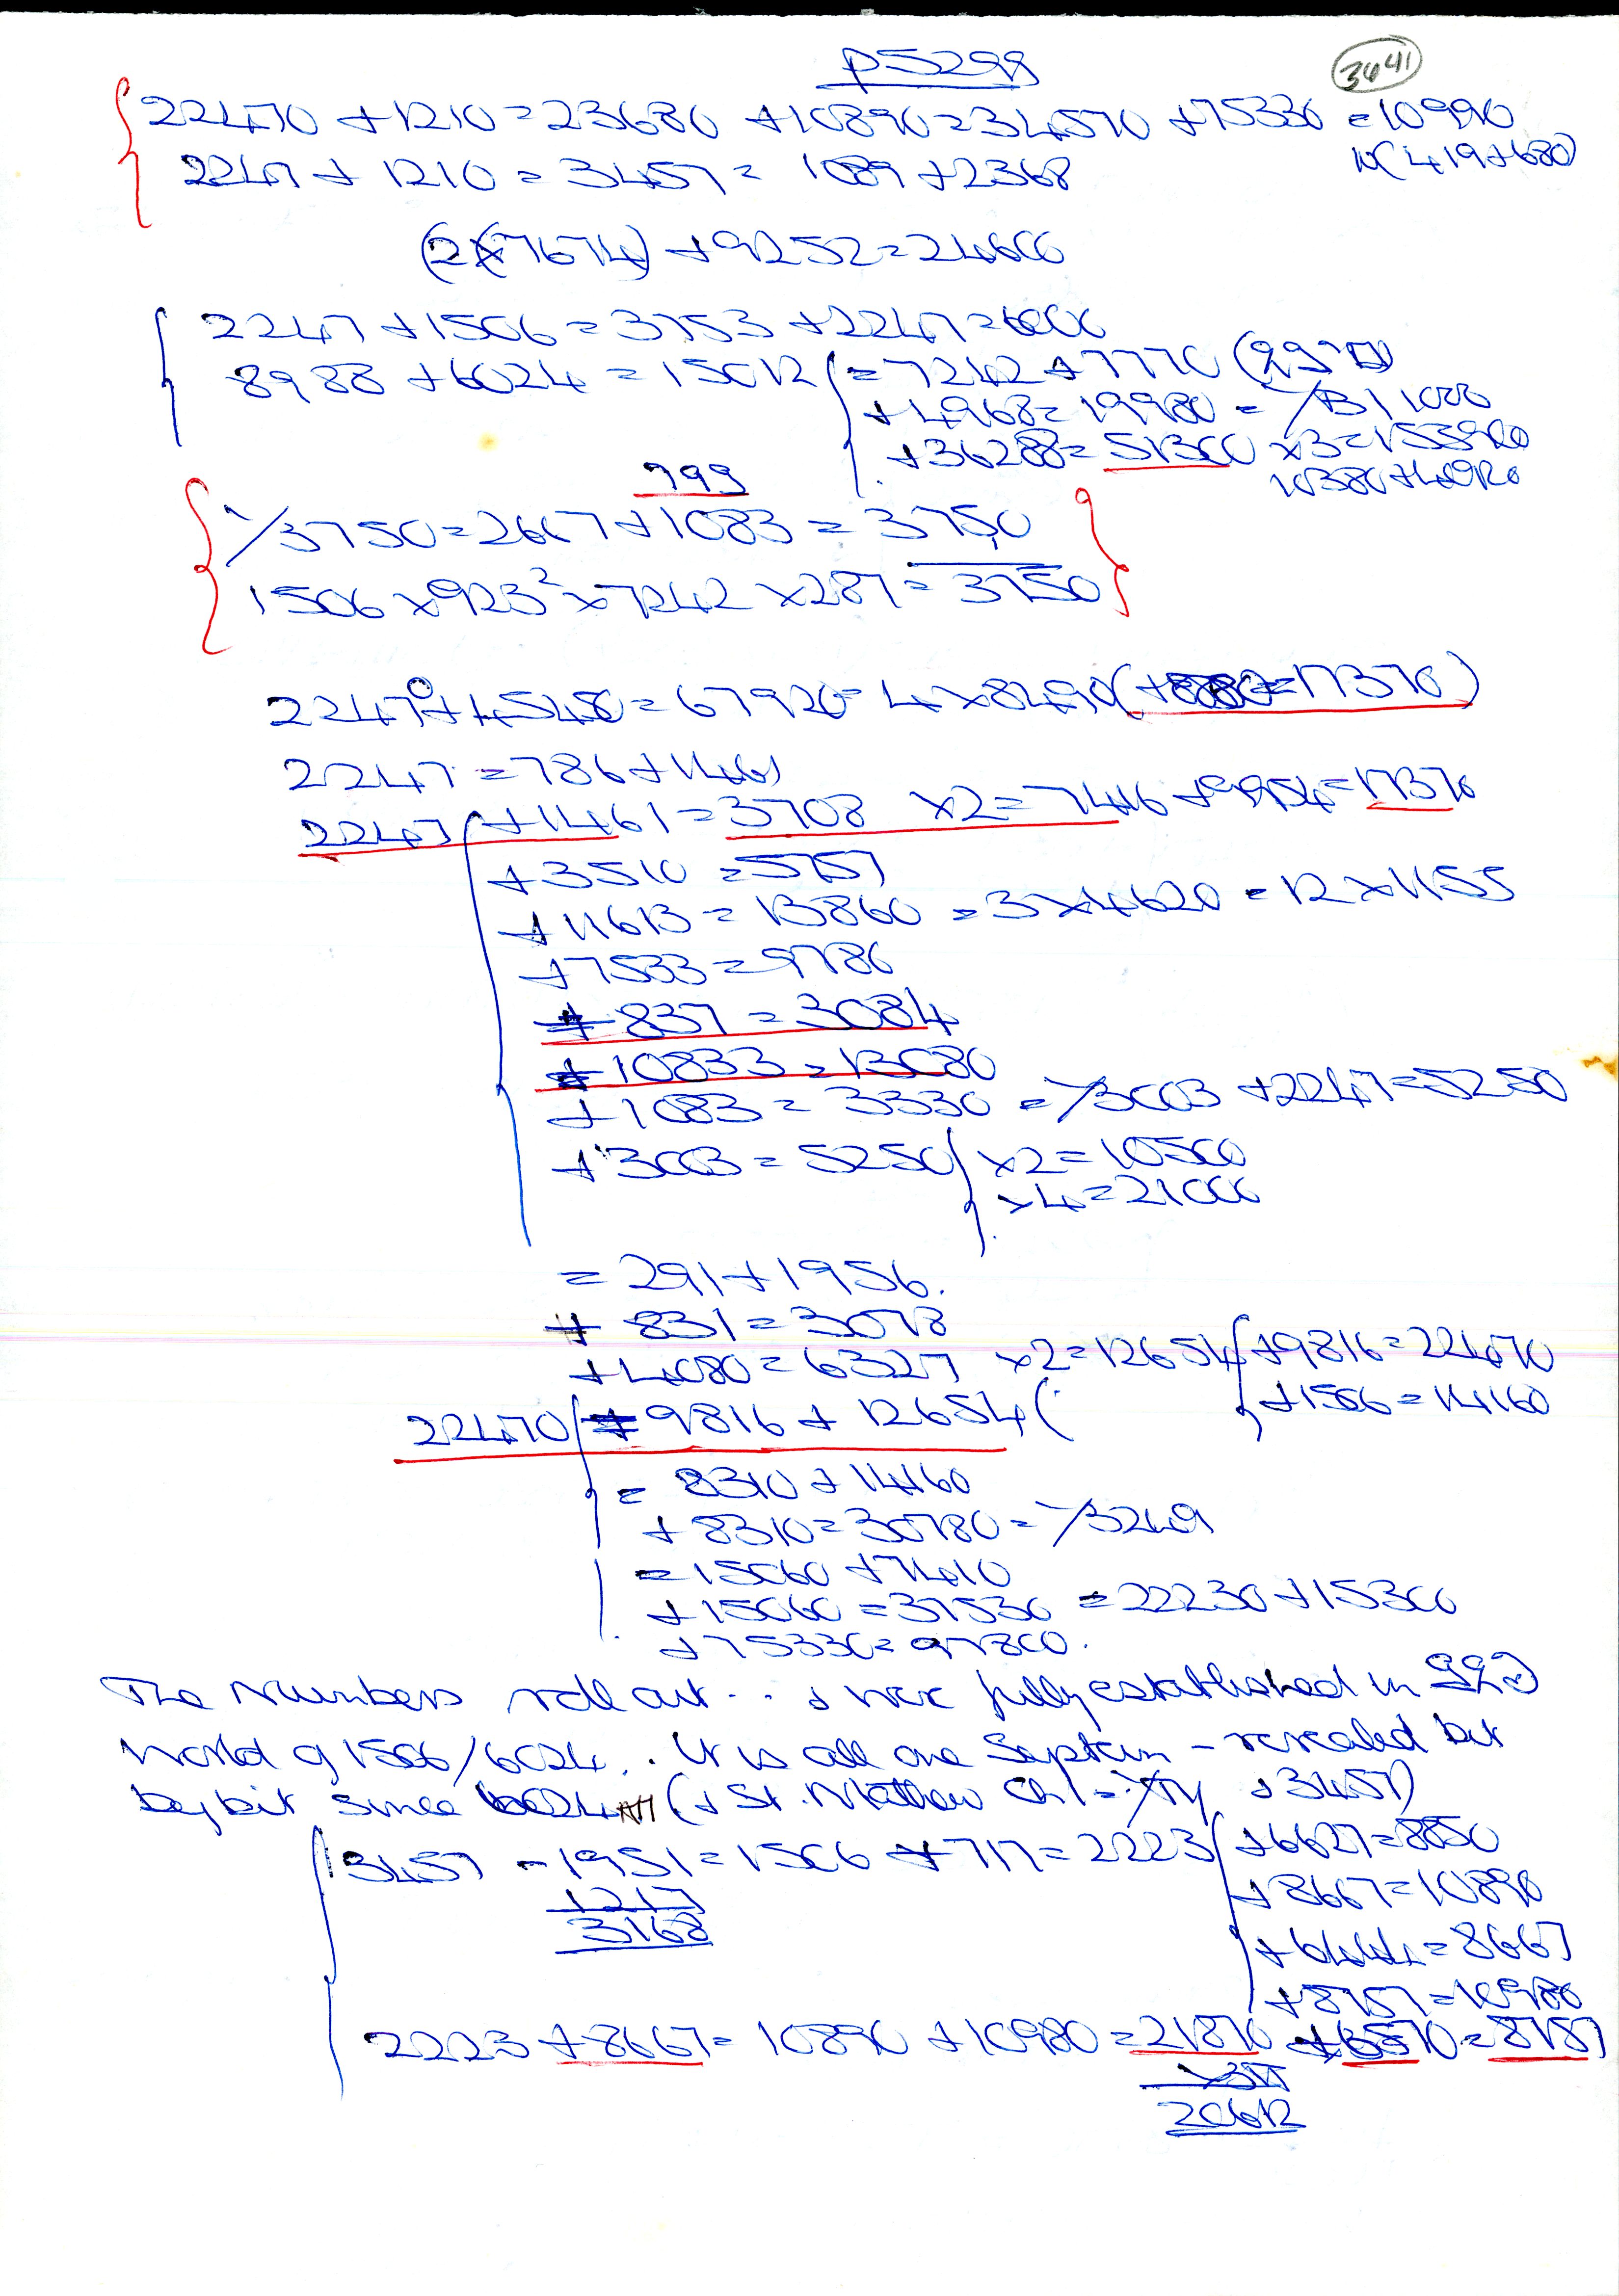 p5299
3641
22470 +1210=23680 +10890=34570 +75330 =10990
10(419+680)
2247 + 1210 = 3457 = 1089 +2368
(2×7674) +9252=24600
2247 +1506 = 3753 +2247=6000
8988 +6024 = 15012 = 7242 + 7770
+4968=19980 =
+36288=51300 ×3=153900
999
3750=2667+1083 = 3750
1506 ×923²×7242 ×287= 3750
22470+45450=67920= 4×8490(+8880=17370)
2247 =786+1461
2247 +1461=3708 ×2=7416 +9954=17370
+3510 =5757
+11613= 13860 = 3×4620 = 12×1155
+7533=9786
+ 837 = 3084
+ 10833 = 13080
+1083= 3330 = 3003 +2247=5250
+3003= 5250 ×2=10500
×4=21000
= 291+1956.
+ 831=3078
+4080=6327 ×2=12654 +9816=22470
+1506=14160
22470 = 9816 + 12654 (
= 8310 + 14160
+ 8310=30780= 3249
=15060 +7410
+15060 =37530 =22230+15300
+75330= 97800.
The Numbers roll out .. & now fully established in 992
World of 1506/6024. It is all one System - revealed bit
by bit since (+ St. Matthew Ch 1 = +3457)
3457 -1951=1506 +717=2223 +6627=8850
1217
3168
+8667=10890
+6444=8667
+8757=10980
2223 +8667= 10890 +10980=21870 +6570=8757
20612